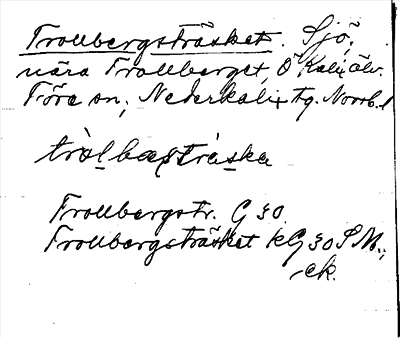 Trollbergsträsket. Sjö,
nära Trollberget, Ö Kalix älv.
Töre sn, Nederkalix tg. Norrb. l
tròl̲bæṣtràs̲ka
Trollbergstr. G 30.
Trollbergsträsket kG 30 S M.,
ek.